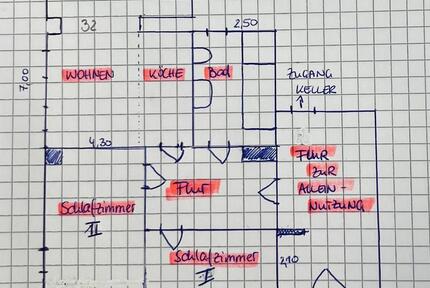 32
2,50
7,00
WOHNEN
KÜCHE
Bad
ZUGANG
KELLER
4,30
FLUR
ZUR
ALLEIN-
NUTZUNG
Flur
Schlafzimmer
II
Schlafzimmer
I
2,10